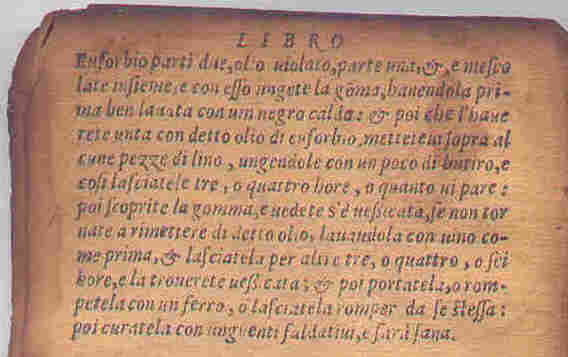 LIBRO
Euforbio parti due, olio uiolato, parte una, &, e mesco
late insieme, e con esso ungete la gõma, hauendola pri-
ma ben lauata con uin negro caldo: & poi che l'haue
rete unta con detto olio di euforbio, metteteui sopra al
cune pezze di lino, ungendole con un poco di butiro, e
cosi lasciatele tre, o quattro hore, o quanto ui pare:
poi scoprite la gomma, e uedete s'è uessicata, se non tor
nate a rimettere di detto olio, lauandola con uino co-
me prima, & lasciatela per altre tre, o quattro, o sei
hore, e la trouerete uessicata: & poi portatela, o rom-
petela con un ferro, o lasciatela romper da se stessa:
poi curatela con unguenti saldatiui, e sarà sana.